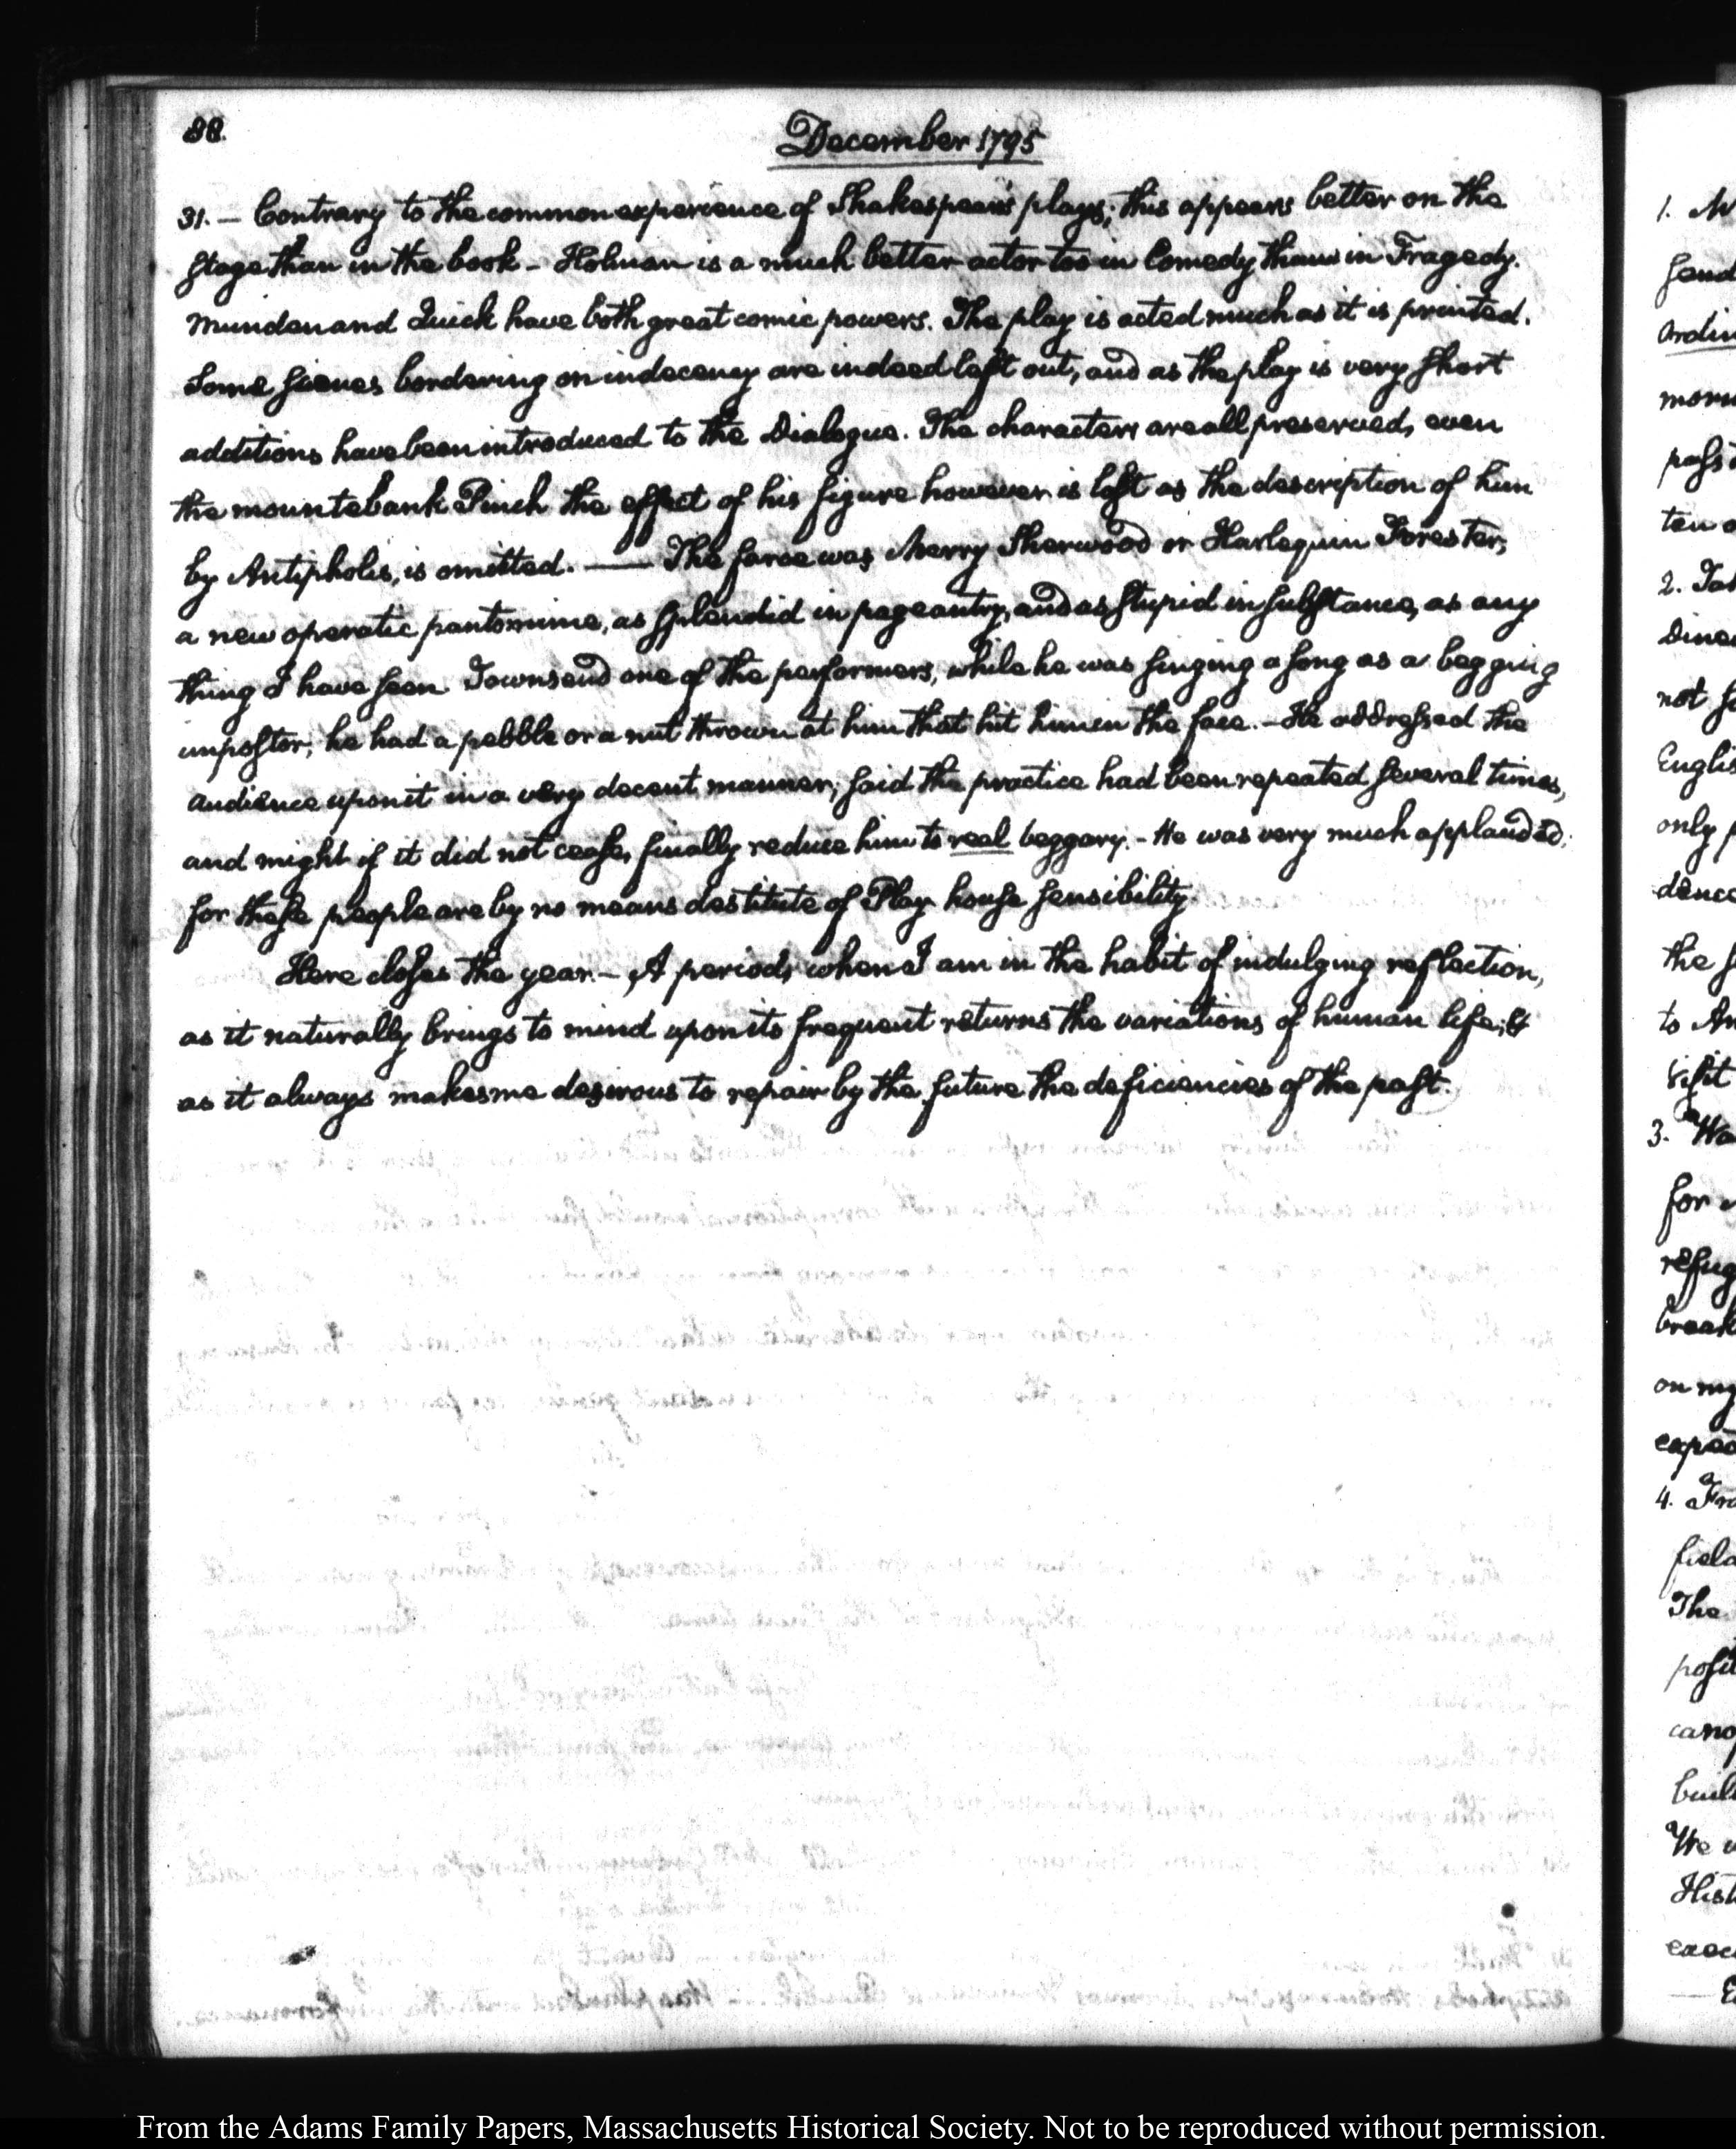 88.
December 1795
31. — Contrary to the common experience of Shakespear's plays; this appears better on the
stage than in the book - Holman is a much better actor too in Comedy than in Tragedy.
Munden and Quick have both great comic powers. The play is acted much as it is printed.
Some scenes bordering on indecency are indeed left out, and as the play is very short
additions have been introduced to the Dialogue. The characters are all preserved, even
the mountebank Pinch the effect of his figure however is lost as the description of him
by Antipholis, is omitted. — The farce was Merry Sherwood or Harlequin Forester,
a new operatic pantomime, as splendid in pageantry, and as stupid in substance, as any
thing I have seen Townsend one of the performers, while he was singing a song as a begging
impostor; he had a pebble or a nut thrown at him that hit him in the face. - He addressed the
audience upon it in a very decent manner; said the practice had been repeated several times,
and might if it did not cease, finally reduce him to real beggary. - He was very much applauded;
for these people are by no means destitute of Play house sensibility.
Here closes the year. - A period, when I am in the habit of indulging reflection,
as it naturally brings to mind upon its frequent returns the variations of human life; &
as it always makes me desirous to repair by the future the deficiencies of the past.
1.
2.
not
only
the
to
3.
for
on my
4.
The
We
From the Adams Family Papers, Massachusetts Historical Society. Not to be reproduced without permission.